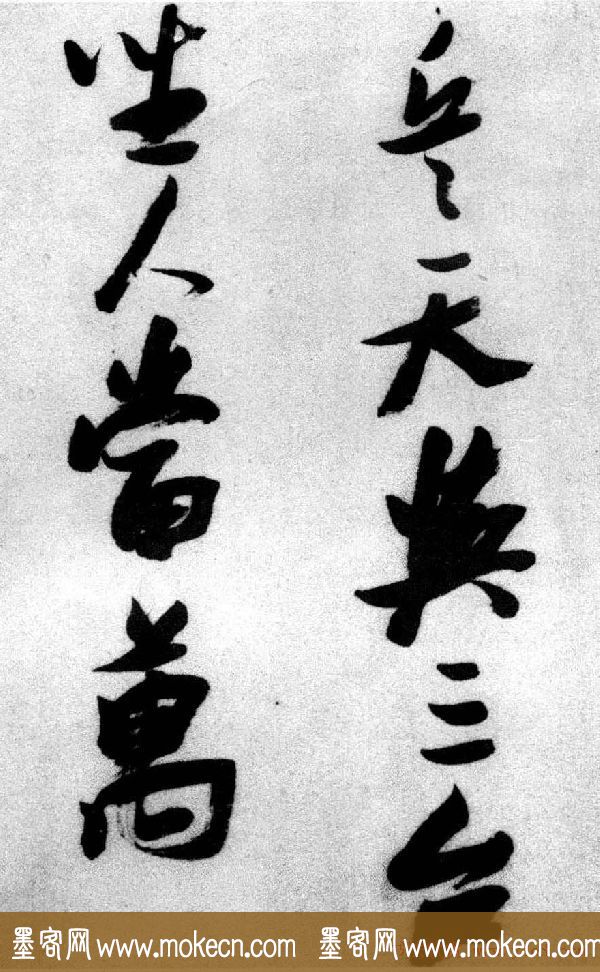 兵天與三台
坐人當萬
墨客网 www.mokecn.com 墨客网 www.mokecn.com